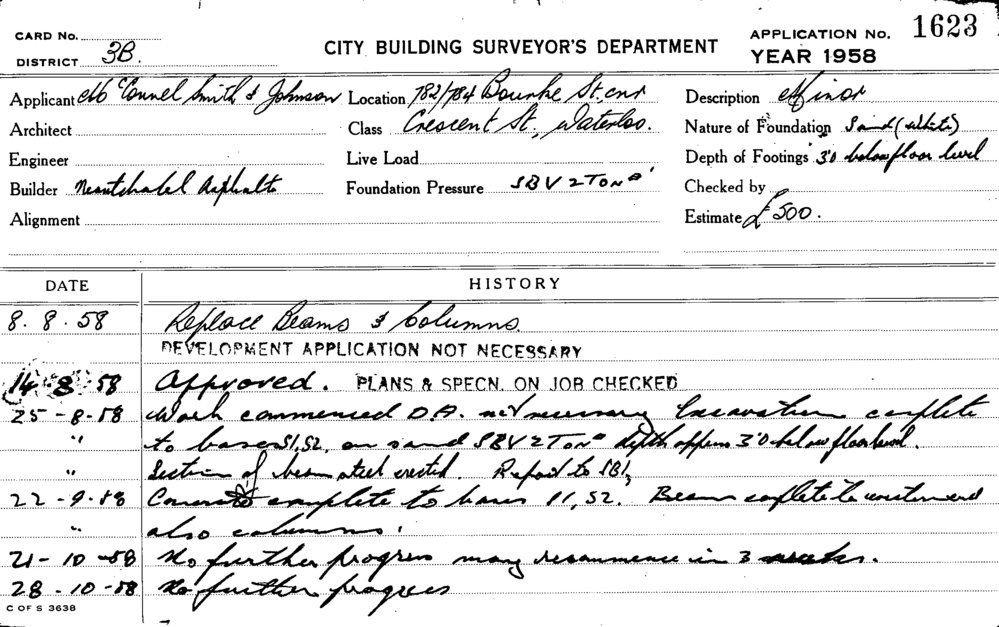 CARD No.
DISTRICT 3B.
CITY BUILDING SURVEYOR'S DEPARTMENT
APPLICATION No. 1623
YEAR 1958
Applicant McConnel Smith & Johnson Location 782/784 Bourke St. cnr Description Minor
Architect Class Crescent St., Waterloo. Nature of Foundation Sand (White)
Engineer Live Load Depth of Footings 3'0 below floor level
Builder Neutchatel Asphalte Foundation Pressure SBV 2 Ton Checked by
Alignment Estimate £500.
DATE HISTORY
8. 8. 58 Replace Beams & Columns.
DEVELOPMENT APPLICATION NOT NECESSARY
14-8-58 Approved. PLANS & SPECN. ON JOB CHECKED
25-8-58 Work commenced D.A. not necessary Excavation complete
" to bases S1, S2, on sand SBV 2 Ton depth approx 3'0 below floor level.
" Section of beam steel erected. Report to SB1,
22-9-58 Concrete complete to bases S1, S2. Beam complete to western end
" also columns.
21-10-58 No further progress may recommence in 3 weeks.
28-10-58 No further progress
C OF S 3638